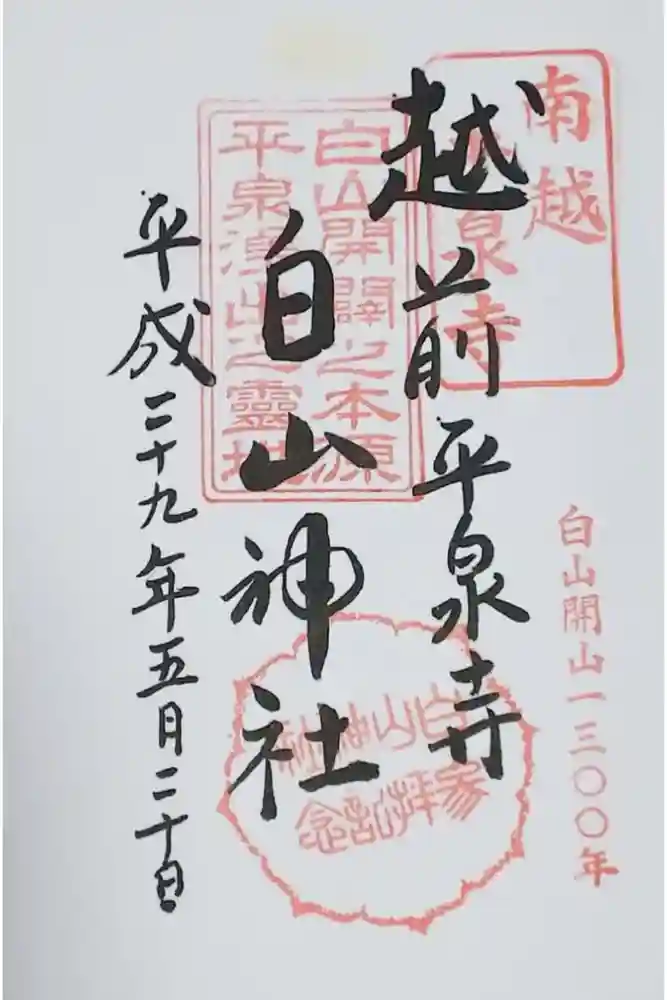 南越
平泉寺
越前平泉寺
白山開闢之本源
平泉涌出之靈地
白山神社
平成二十九年五月二十日
白山神社
参拝記念
白山開山一三〇〇年